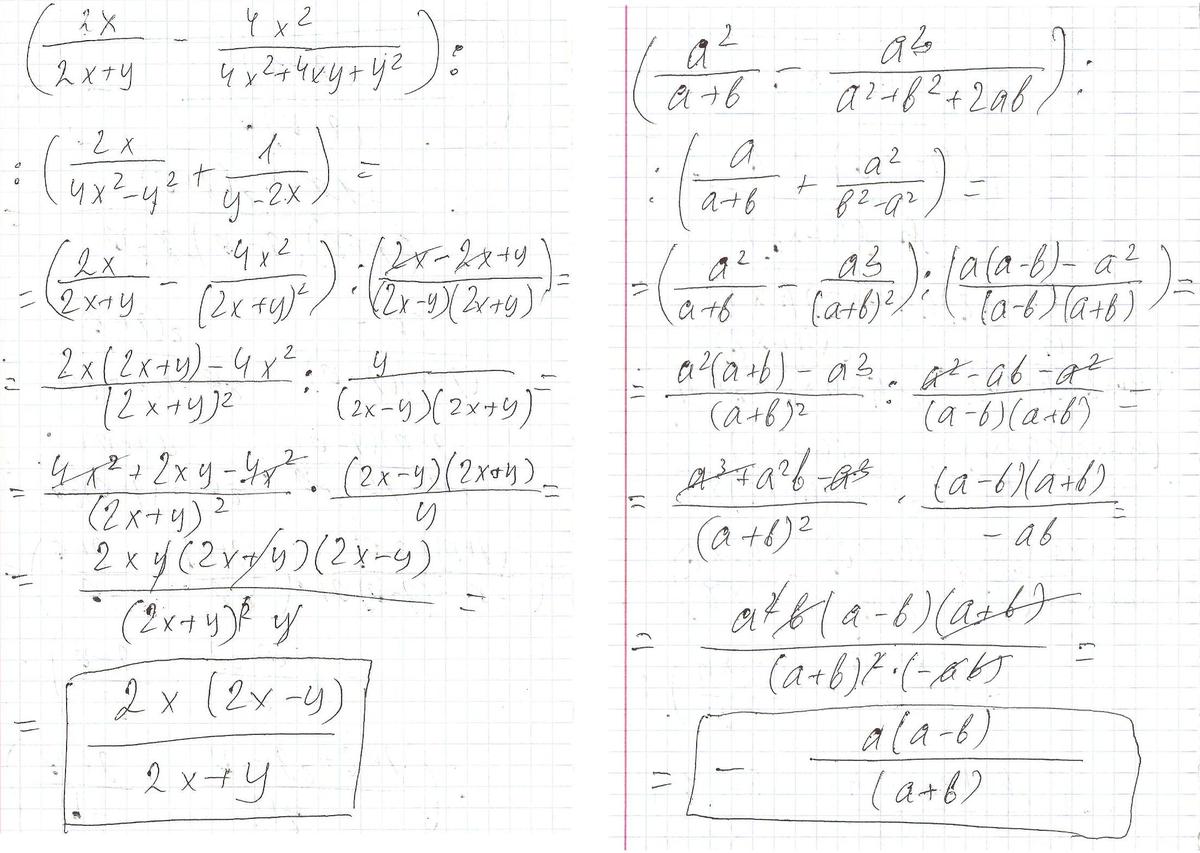 (2x/(2x+y) - 4x²/(4x²+4xy+y²)) :
: (2x/(4x²-y²) + 1/(y-2x)) =
= (2x/(2x+y) - 4x²/(2x+y)²) : ((2x-2x+y)/((2x-y)(2x+y))) =
= (2x(2x+y)-4x²)/(2x+y)² : y/((2x-y)(2x+y)) =
= (4x²+2xy-4x²)/(2x+y)² · ((2x-y)(2x+y))/y =
= (2xy(2x+y)(2x-y))/((2x+y)² y) =
= (2x(2x-y))/(2x+y)
(a²/(a+b) - a³/(a²+b²+2ab)) :
: (a/(a+b) + a²/(b²-a²)) =
= (a²/(a+b) - a³/(a+b)²) : ((a(a-b)-a²)/((a-b)(a+b))) =
= (a²(a+b)-a³)/(a+b)² : (a²-ab-a²)/((a-b)(a+b)) =
= (a³+a²b-a³)/(a+b)² · ((a-b)(a+b))/(-ab) =
= (a²b(a-b)(a+b))/((a+b)²·(-ab)) =
= - (a(a-b))/((a+b))